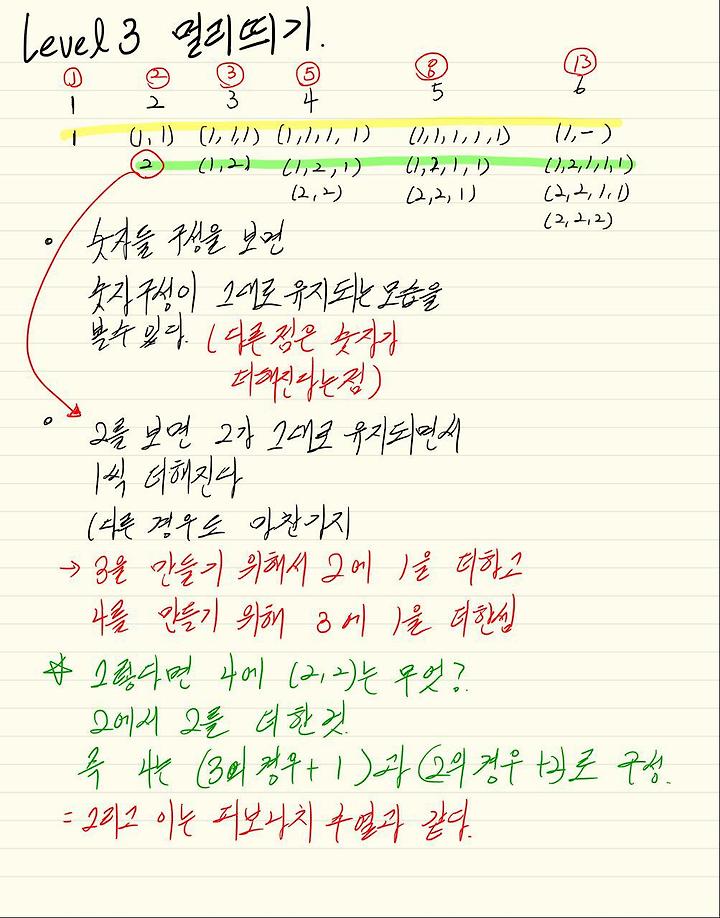 Level 3 멀리뛰기.
① ② ③ ⑤ ⑧ ⑬
1 2 3 4 5 6
1 (1,1) (1,1,1) (1,1,1,1) (1,1,1,1,1) (1,-)
2 (1,2) (1,2,1) (1,2,1,1) (1,2,1,1,1)
(2,2) (2,2,1) (2,2,1,1)
(2,2,2)
• 숫자들 구성을 보면
숫자구성이 그대로 유지되는 모습을
볼수 있다. (다른 점은 숫자가
더해진다는점)
• 2를 보면 2가 그대로 유지되면서
1씩 더해진다
(다른 경우도 마찬가지
→ 3을 만들기 위해서 2에 1을 더하고
4를 만들기 위해 3에 1을 더한셈
☆ 그렇다면 4에 (2,2)는 무엇?
2에서 2를 더한것.
즉 4는 (3의 경우+1)과 (2의 경우+2)로 구성.
= 그리고 이는 피보나치 수열과 같다.